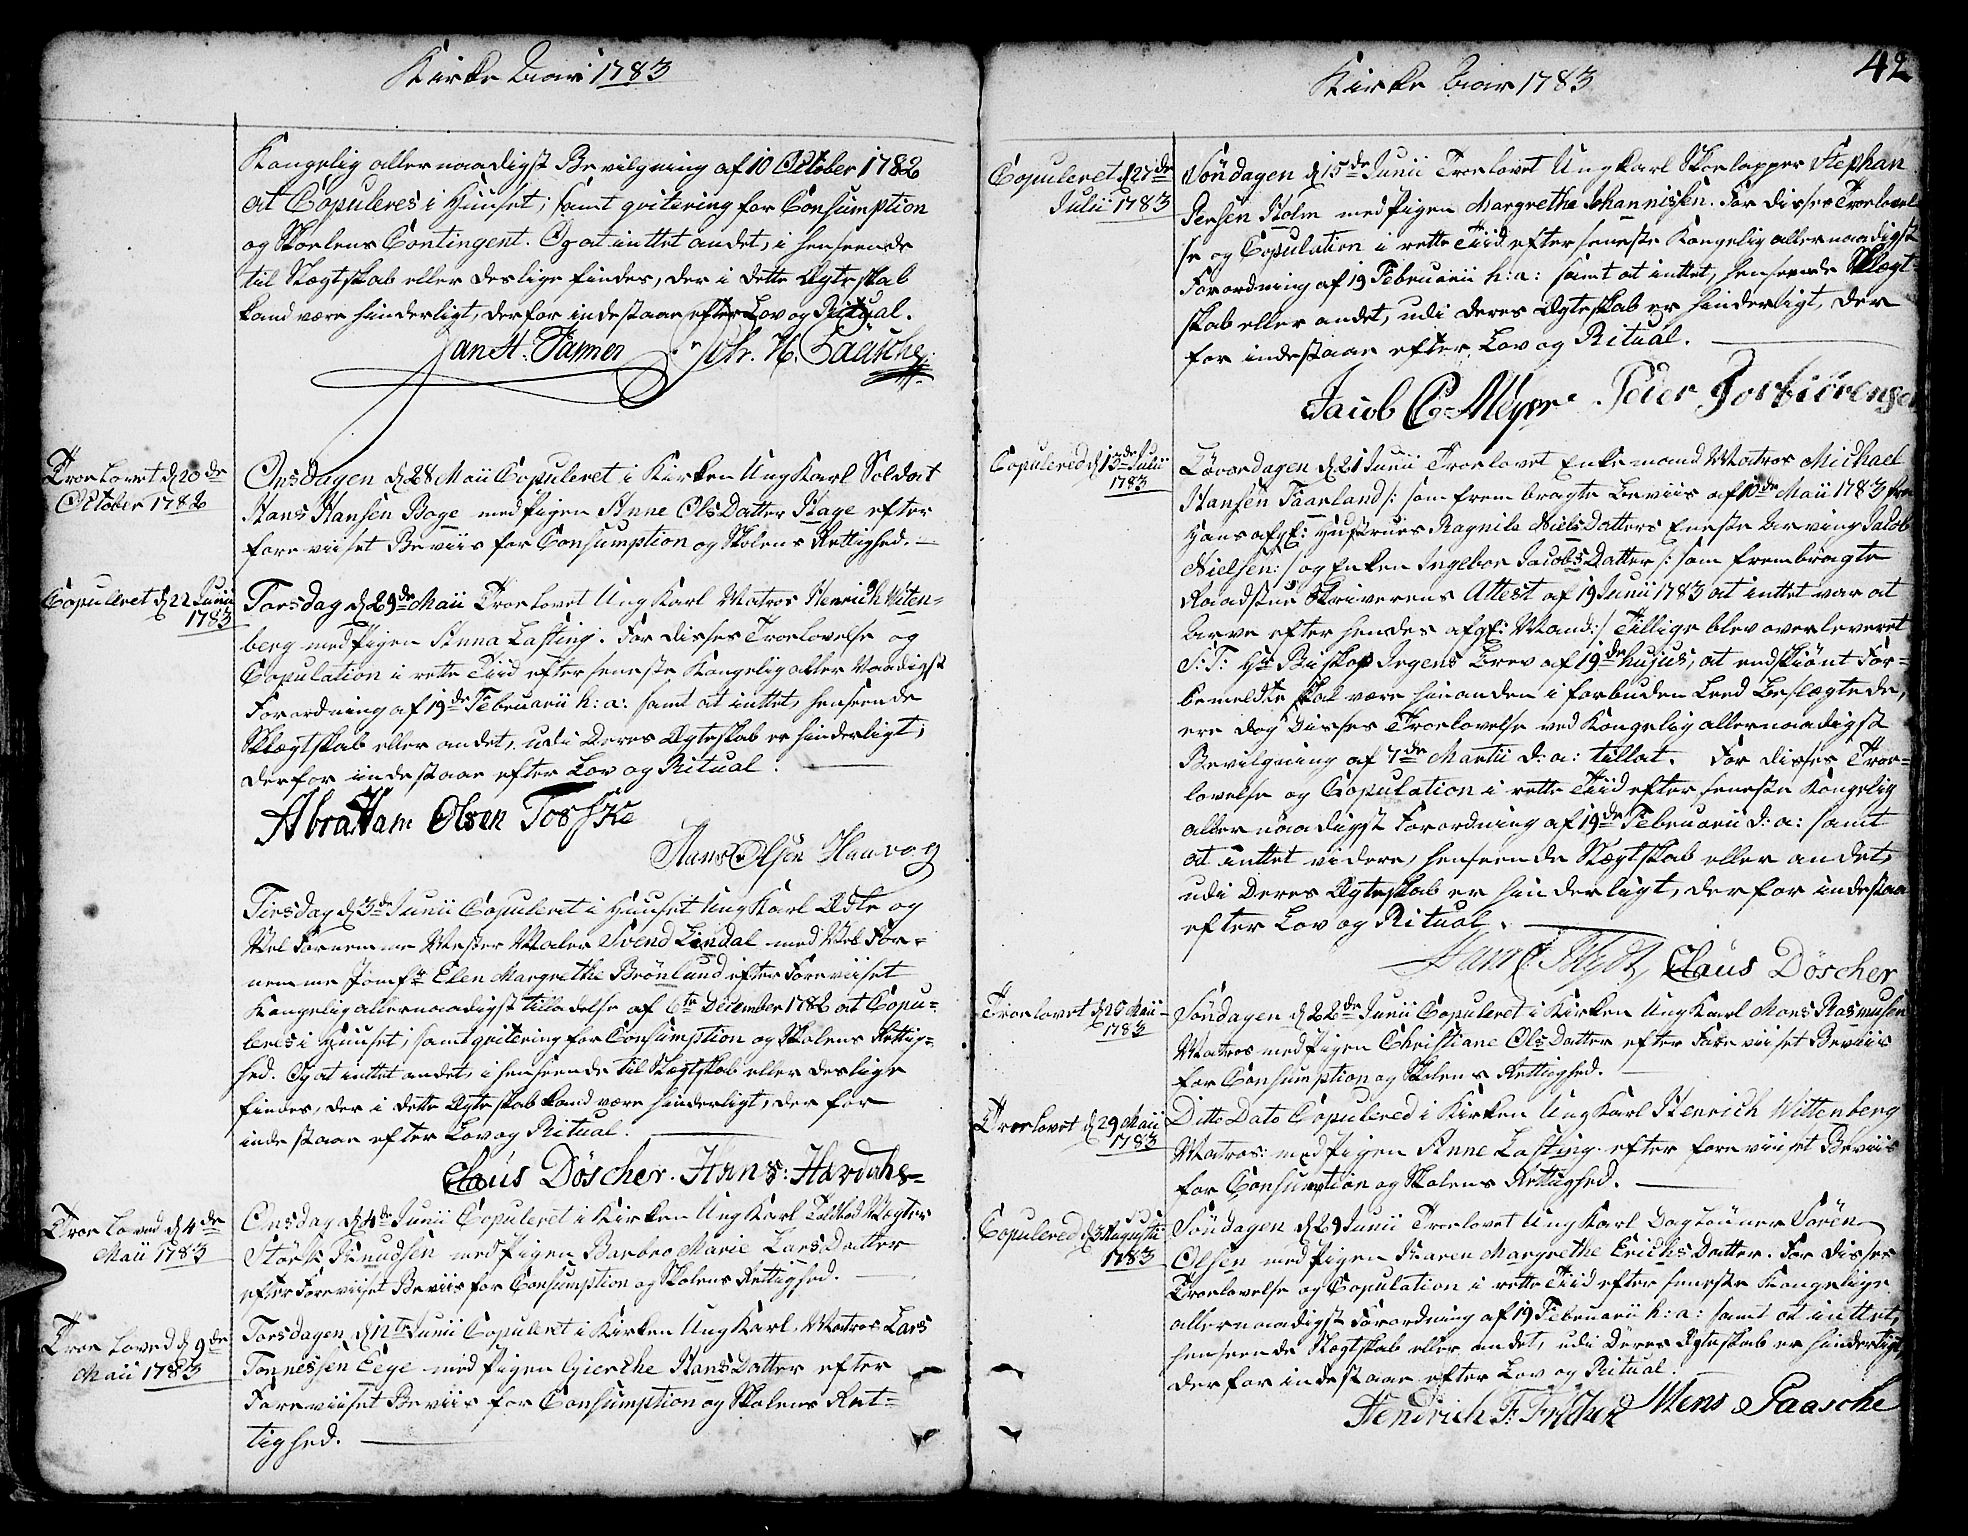 Kirke Aar 1783
Kongelig allernaadigst Bevilgning af 10 October 1782
at Copuleres i Huuset; samt qvitering for Consumption
og Skolens Contingent. Og at inttet andet, i henseende
til Slægtskab eller deslige findes, der i dette Ægteskab
kand være hinderligt, derfor indestaar efter Lov og Ritual.
Jan H. Fasmer Joh. H. Paasche
Troelovet d 20de
October 1782
Onsdagen d 28 Maii Copuleret i Kirken Ung Karl Soldat
Hans Hansen Boge med Pigen Anne Ols Datter Stage efter
foreviiset Beviis for Consumption og Skolens Rettighed.
Copuleret d 22 Junii
1783
Torsdag d 29de Maii Troelovet Ung Karl Matros Henrich Witen-
berg med Pigen Anna Lasting. For disses Troelovelse og
Copulation i rette Tiid efter seneste Kongelig aller Naadigst
Forordning af 19de Februarii h: a: samt at inttet, henseende
Slægtskab eller andet, udi Deres Ægteskab er hinderligt,
derfor indestaar efter Lov og Ritual.
Abraham Olsen Toske
Hans Olsen Haavog
Tirsdag d 3de Junii Copuleret i Huuset Ung Karl Ædle og
Vel Fornemme Mester Maler Svend Lindal med Vel For-
nemme Jomfr Elen Margrethe Brönlund efter Foreviiset
Kongelig allernaadigst tilladelse af 6te December 1782 at Copu-
leres i Huuset, samt qvitering for Consumption og Skolens Rettig-
hed. Og at inttet andet, i henseende til Slægtskab eller deslige
findes, der i dette Ægteskab kand være hinderligt, der for
indestaar efter Lov og Ritual.
Claus Döscher. Hans:
Troe Loved d 4de
Maii 1783
Onsdag d 4de Junii Copuleret i Kirken Ung Karl Vægter
Störk Knudsen med Pigen Barbro Marie Lars Datter
efter Foreviiset Beviis for Consumption og Skolens Rettighed.
Troe Loved d 9de
Maii 1783
Torsdagen d 12te Junii Copuleret i Kirken Ung Karl Matros Lars
Tonnessen Eege med Pigen Giertke Hans Datter efter
Foreviiset Beviis for Consumption og Skolens Ret-
tighed.
Kirke Aar 1783
42
Copuleret d 27de
Julii 1783
Söndagen d 15de Junii Troelovet Ung Karl Skoelapper Stephan
Persen Holm med Pigen Margrethe Johannissen. For disses Troelovel-
se og Copulation i rette Tiid efter seneste Kongelig allernaadigst
Forordning af 19 Februarii h: a: samt at inttet, henseende Slægt-
skab eller andet, udi deres Ægteskab er hinderligt, der
for indestaar efter Lov og Ritual.
Jacob C. Meyer Peder
Copulered d 13de Julii
1783
Löverdagen d 21 Junii Troelovet Enkemand Matros Michael
Hansen Faarland /: som frembragte Beviis af 10de Maii 1783 fra
Hans afg: Hustrues Ragnile Niels Datters Eneste Arving Jacob
Nielsen: / og Enken Ingebor Jacobs Datter /: som frembragte
Raadstue Skriverens Attest af 19 Junii 1783 at inttet var at
Arve efter hendes afg: Mand: / Tillige blev overleveret
S: T: Hr Biskop Irgens Brev af 19de hujus, at endskiönt For-
bemeldte skal være hinanden i forbuden Leed Beslægtede,
ere dog Disses Troelovelse ved Kongelig allernaadigst
Bevilgning af 7de Martii d: a: tillat. For disses Troe-
lovelse og Copulation i rette Tiid efter seneste Kongelig
allernaadigst Forordning af 19de Februarii d: a: samt
at inttet videre, henseende Slægtskab eller andet,
udi Deres Ægteskab er hinderligt, der for indestaar
efter Lov og Ritual.
Claus Döscher
Troelovet d 20 Maii
1783
Söndagen d 22de Junii Copuleret i Kirken Ung Karl Mons Rasmusen
Matros med Pigen Christiane Ols Datter efter Foreviiset Beviis
for Consumption og Skolens Rettighed.
Troelovet d 29 Maii
1783
Ditto Dato Copulered i Kirken Ung Karl Henrich Wittenberg
Matros med Pigen Anne Lasting efter foreviiset Beviis
for Consumption og Skolens Rettighed.
Copulered d 3 Augustii
1783
Söndagen d 29 Junii Troelovet Ung Karl Dagleüner Sörön
Olsen med Pigen Karen Margrethe Erichs Datter. For disses
Troelovelse og Copulation i rette Tiid efter seneste Kongelige
allernaadigst Forordning af 19 Februarii h: a: samt at inttet,
henseende Slægtskab eller andet, udi Deres Ægteskab er hinderligt,
derfor indestaar efter Lov og Ritual.
Hendrich F. Mens Paasche